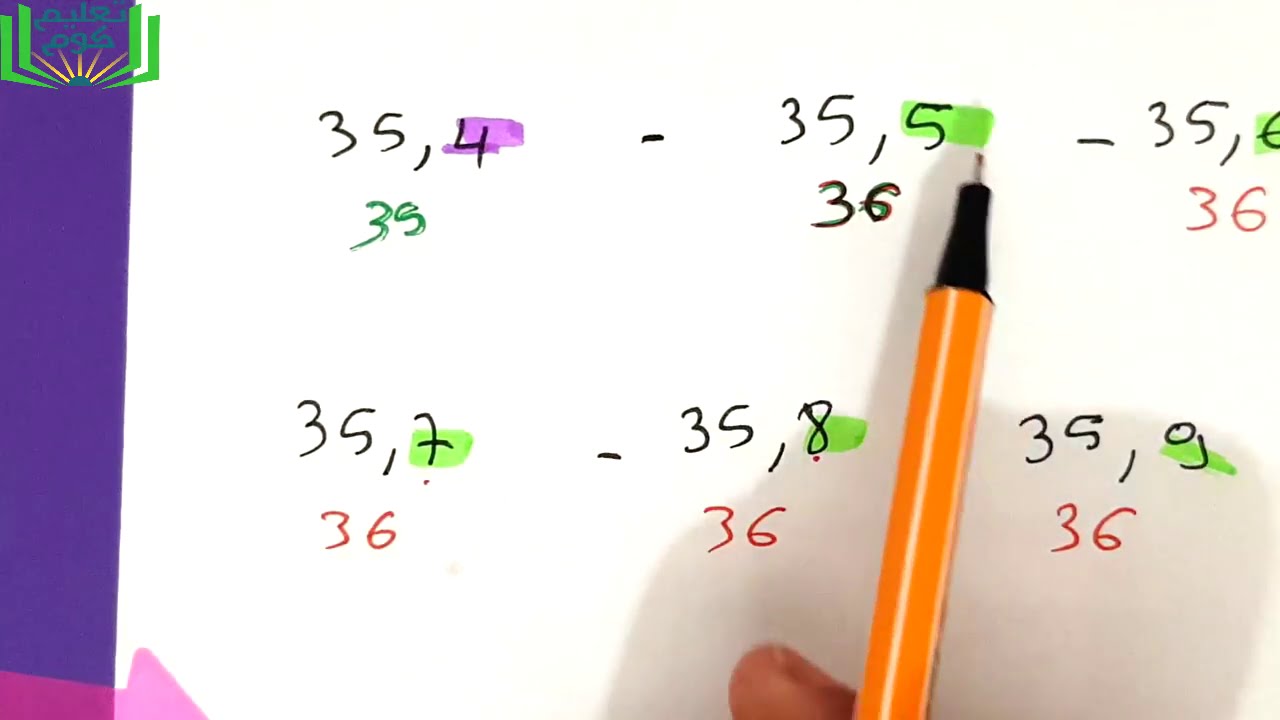 تعليم
كوم
35,4 - 35,5 - 35,6
35 36 36
35,7 - 35,8 35,9
36 36 36